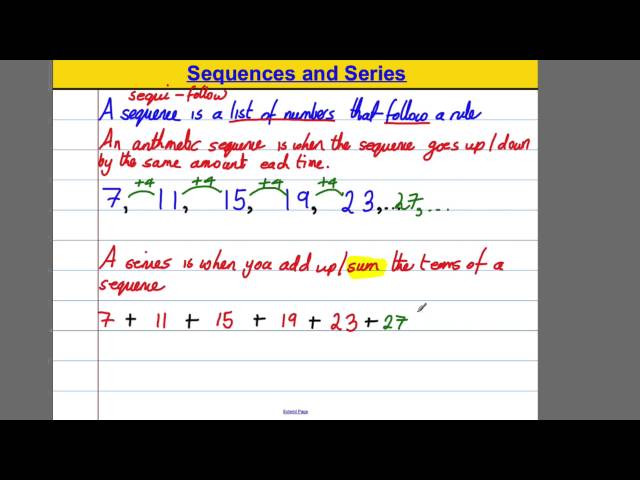 Sequences and Series
sequi - follow
A sequence is a list of numbers that follow a rule
An arithmetic sequence is when the sequence goes up/down
by the same amount each time.
+4 +4 +4 +4
7, 11, 15, 19, 23, ...27, ...
A series is when you add up/sum the terms of a
sequence
7 + 11 + 15 + 19 + 23 + 27
Extend Page